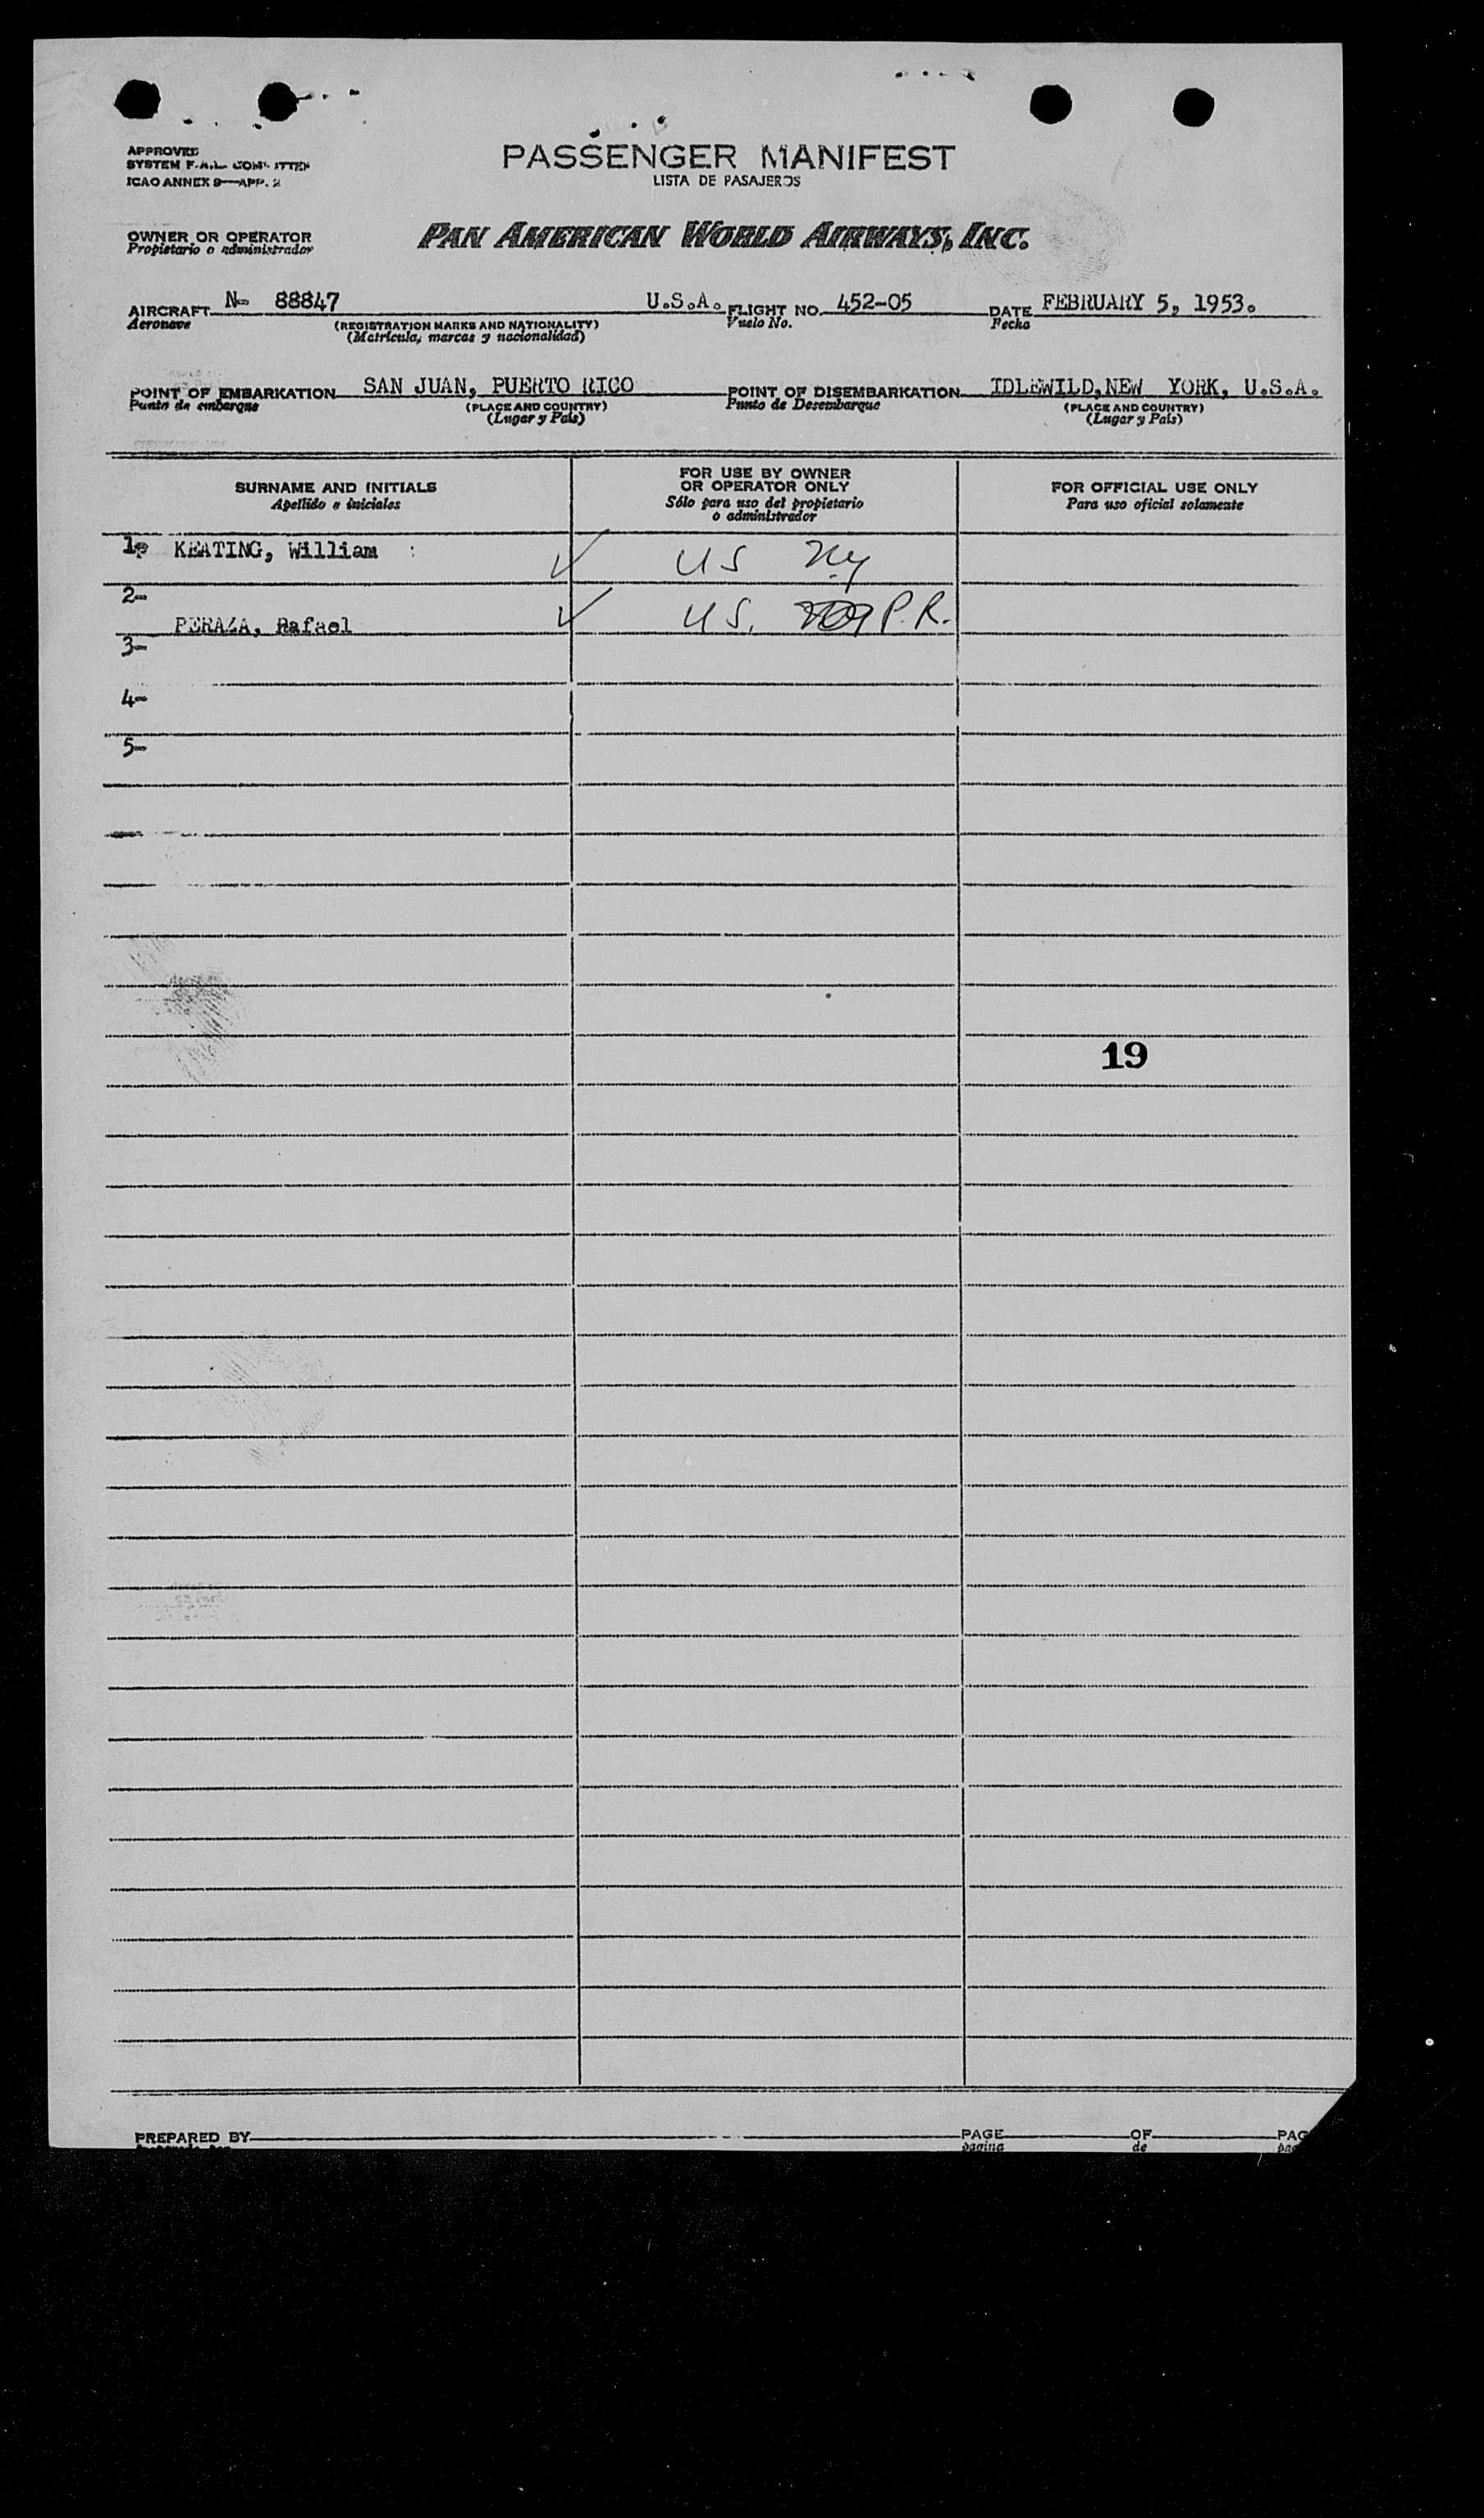 APPROVED
SYSTEM F.A.L. COMMITTEE
ICAO ANNEX 9—APP. 2
PASSENGER MANIFEST
LISTA DE PASAJEROS
OWNER OR OPERATOR
Propietario o administrador
PAN AMERICAN WORLD AIRWAYS, INC.
AIRCRAFT N- 88847 U.S.A. FLIGHT NO. 452-05 DATE FEBRUARY 5, 1953.
Aeronave (REGISTRATION MARKS AND NATIONALITY) Vuelo No. Fecha
(Matrícula, marcas y nacionalidad)
POINT OF EMBARKATION SAN JUAN, PUERTO RICO POINT OF DISEMBARKATION IDLEWILD,NEW YORK, U.S.A.
Punto de embarque (PLACE AND COUNTRY) Punto de Desembarque (PLACE AND COUNTRY)
(Lugar y País) (Lugar y País)
SURNAME AND INITIALS
Apellido e iniciales
FOR USE BY OWNER
OR OPERATOR ONLY
Sólo para uso del propietario
o administrador
FOR OFFICIAL USE ONLY
Para uso oficial solamente
1- KEATING, William : ✓ US NY
2-
PERAZA, Rafael ✓ U.S. P.R.
3-
4-
5-
19
PREPARED BY PAGE OF
pagina de